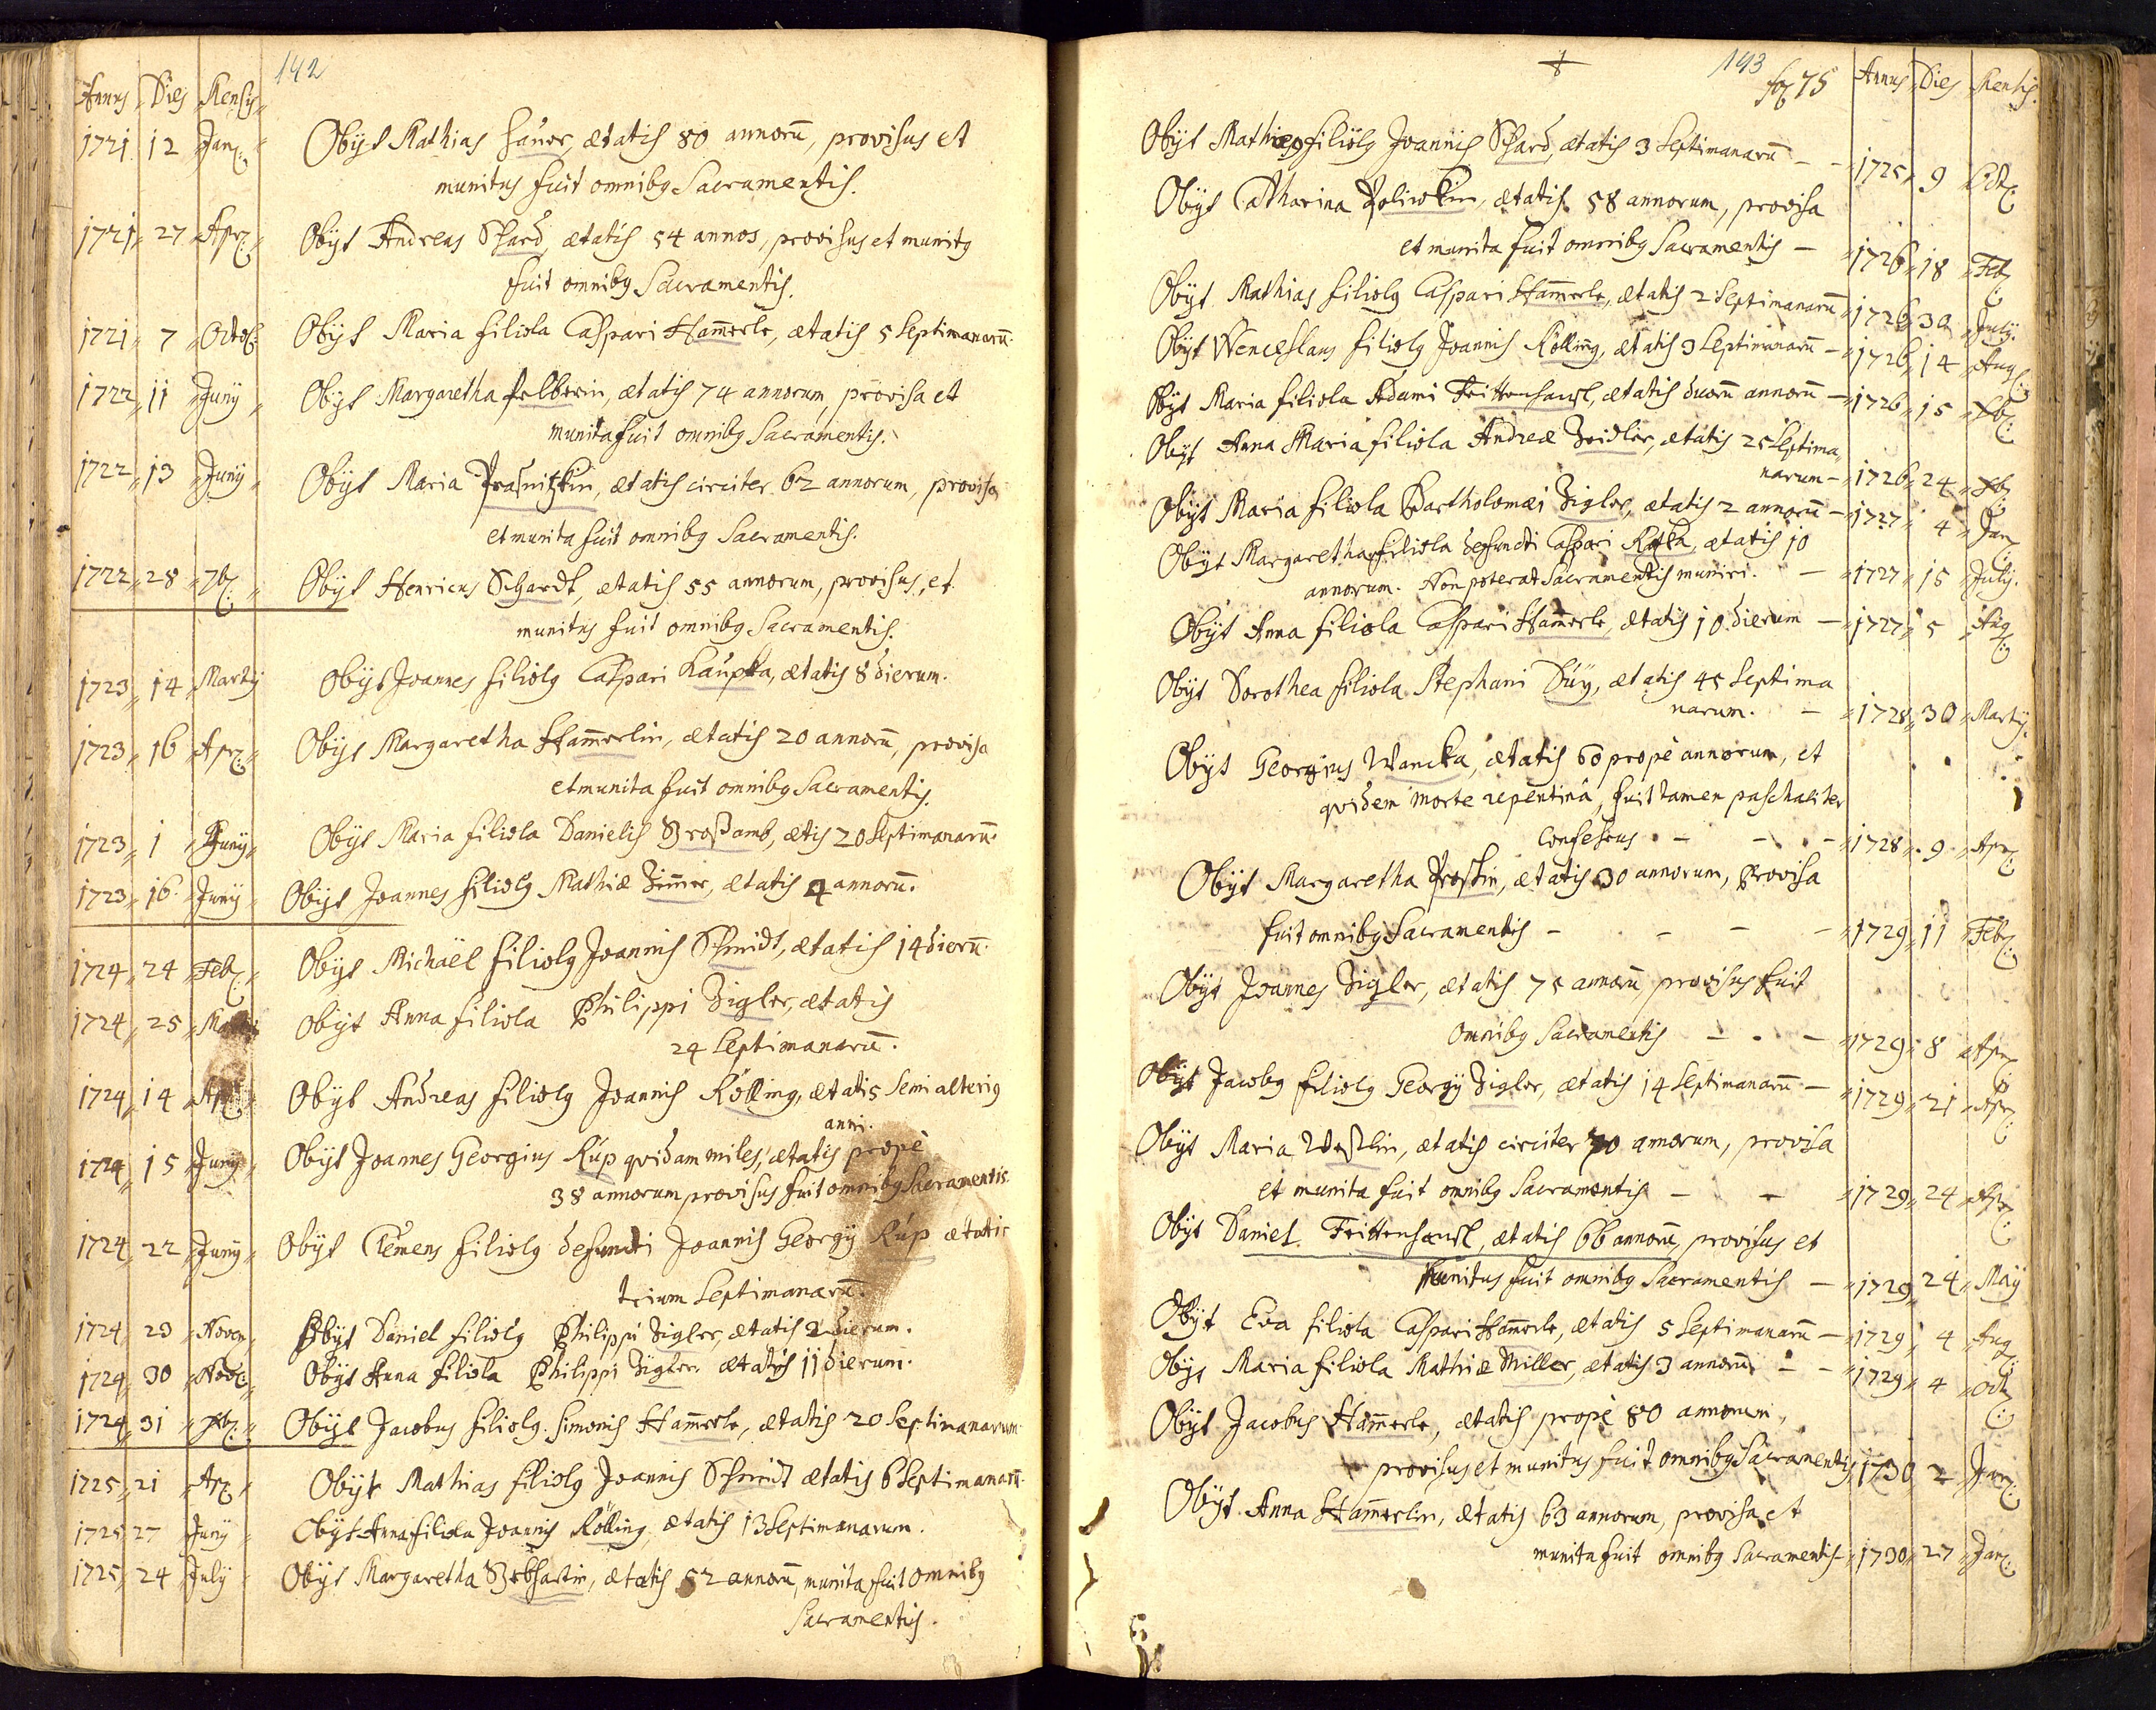 142
Annus Dies Mensis
1721 12 Jan: Obijt Mathias Hauer, ætatis 80 annorũ, provisus et
munitus fuit omnibq Sacramentis.
1721 27 Apr: Obijt Andreas Schard, ætatis 54 annos, provisus et munitq
fuit omnibq Sacramentis.
1721 7 Octob: Obijt Maria filiola Caspari Ham̃erle, ætatis 5 Septimanarũ.
1722 11 Junij Obijt Margaretha felberin, ætatis 74 annorum, provisa et
munita fuit omnibq Sacramentis.
1722 13 Junij Obijt Maria Prasnitzkin, ætatis circiter 62 annorum, provisa
et munita fuit omnibq Sacramentis.
1722 28 7br: Obijt Henricus Schardt, ætatis 55 annorum, provisus, et
munitus fuit omnibq Sacramentis.
1723 14 Martij Obijt Joannes filiolq Caspari Kaupka, ætatis 8 dierum.
1723 16 Apr: Obijt Margaretha Ham̃erlin, ætatis 20 annorũ, provisa
et munita fuit omnibq Sacramentis.
1723 1 Junij Obijt Maria filiola Danielis Broßamb, ætis 20 Septimanarũ.
1723 16 Junij Obijt Joannes filiolq Mathiæ Zim̃er, ætatis 4 annorũ.
1724 24 Feb: Obijt Michaël filiolq Joannis Schmidt, ætatis 14 dierũ.
1724 25 Martij Obijt Anna filiola Philippi Zigler, ætatis
24 Septimanarũ.
1724 14 Apr: Obijt Andreas filiolq Joannis Kölling, ætatis Semi alteriq
anni.
1724 15 Junij Obijt Joannes Georgius Rup quidam miles, ætatis propè
38 annorum provisus fuit omnibq Sacramentis
1724 22 Junij Obijt Clemens filiolq defuncti Joannis Georgij Rup ætatis
trium Septimanarũ.
1724 23 Novem Obijt Daniel filiolq Philippi Zigler, ætatis 2 dierum.
1724 30 Nov: Obijt Anna filiola Philippi Zigler ætatis 11 dierum.
1724 31 Xbr: Obijt Jacobus filiolq Simonis Ham̃erle, ætatis 20 Septimanarum
1725 21 Apr: Obijt Mathias filiolq Joannis Schmidt ætatis 6 Septimanarũ.
1725 27 Junij Obijt Anna filiola Joannis Kölling, ætatis 13 Septimanarum.
1725 24 July Obijt Margaretha Gebhartin, ætatis 52 annorũ, munita fuit omnibq
Sacramentis.
143
75 Annus Dies Mentis.
Obijt Mathias filiolq Joannis Schard, ætatis 3 Septimanarũ - - 1725 9 Oct:
Obijt Catharina Poliwkin, ætatis 58 annorum, provisa
et munita fuit omnibq Sacramentis - 1726 18 Feb:
Obijt Mathias filiolq Caspari Ham̃erle, ætatis 2 Septimanarũ 1726 30 July.
Obijt Wenceslaus filiolq Joannis Kölling, ætatis 3 Septimanarũ - 1726 14 Aug:
Obijt Maria filiola Adami Frittenhansl, ætatis duorũ annorũ - 1726 15 Xbr:
Obijt Anna Maria filiola Andreæ Zeidler, ætatis 25 Septima
narum - 1726 24 Xbr:
Obijt Maria filiola Bartholomæi Zigler, ætatis 2 annorũ - 1727 4 Jan:
Obijt Margaretha filiola defuncti Caspari Kotka, ætatis 10
annorum. Non poterat Sacramentis muniri. - 1727 15 July.
Obijt Anna filiola Caspari Ham̃erle, ætatis 10 dierum - 1727 5 Aug:
Obijt Dorothea filiola Stephani Duy, ætatis 45 Septima
narum. - 1728 30 Martij.
Obijt Georgius Wancka, ætatis 60 propè annorum, et
quidem morte repentinâ, fuit tamen paschaliter
Confessus - - - 1728 9 Apr:
Obijt Margaretha Proskin, ætatis 30 annorum, Provisa
fuit omnibq Sacramentis - - - - 1729 11 Feb:
Obijt Joannes Zigler, ætatis 75 annorũ provisus fuit
omnibq Sacramentis - - - 1729 8 Apr:
Obijt Jacobq filiolq Georgij Zigler, ætatis 14 Septimanarũ - 1729 21 Apr:
Obijt Maria Weßlin, ætatis circiter 70 annorum, provisa
et munita fuit omnibq Sacramentis - - 1729 24 Apr:
Obijt Daniel Frittenhansl, ætatis 66 annorũ, provisus et
munitus fuit omnibq Sacramentis - 1729 24 Maij
Obijt Eva filiola Caspari Ham̃erle, ætatis 5 Septimanarũ - 1729 4 Aug:
Obijt Maria filiola Mathiæ Miller, ætatis 3 annorũ - - 1729 4 Oct:
Obijt Jacobus Ham̃erle, ætatis propè 80 annorum,
provisus et munitus fuit omnibq Sacramentis 1730 2 Jan:
Obijt Anna Ham̃erlin, ætatis 63 annorum, provisa et
munita fuit omnibq Sacramentis - 1730 27 Jan: